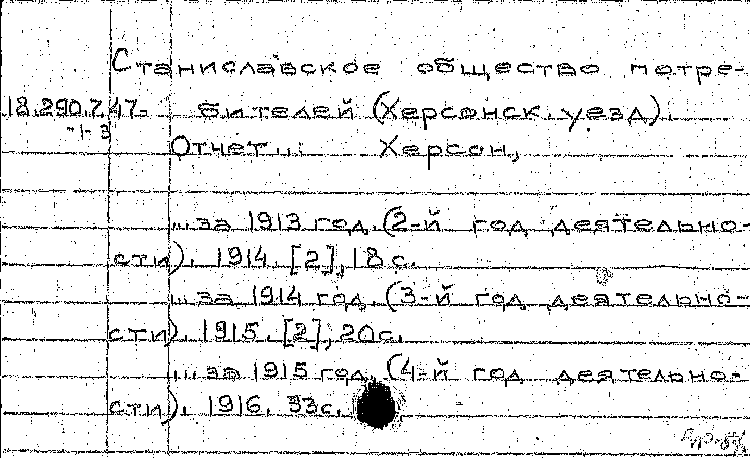 Станиславское общество потре-
18.290.7.47- бителей (Херсонск. уезд).
-1-3
Отчет...: Херсон,
...за 1913 год. (2-й год деятельно-
сти). 1914. [2], 18 с.
...за 1914 год. (3-й год деятельно-
сти). 1915. [2], 20 с.
...за 1915 год. (4-й год деятельно-
сти). 1916. 33 с.